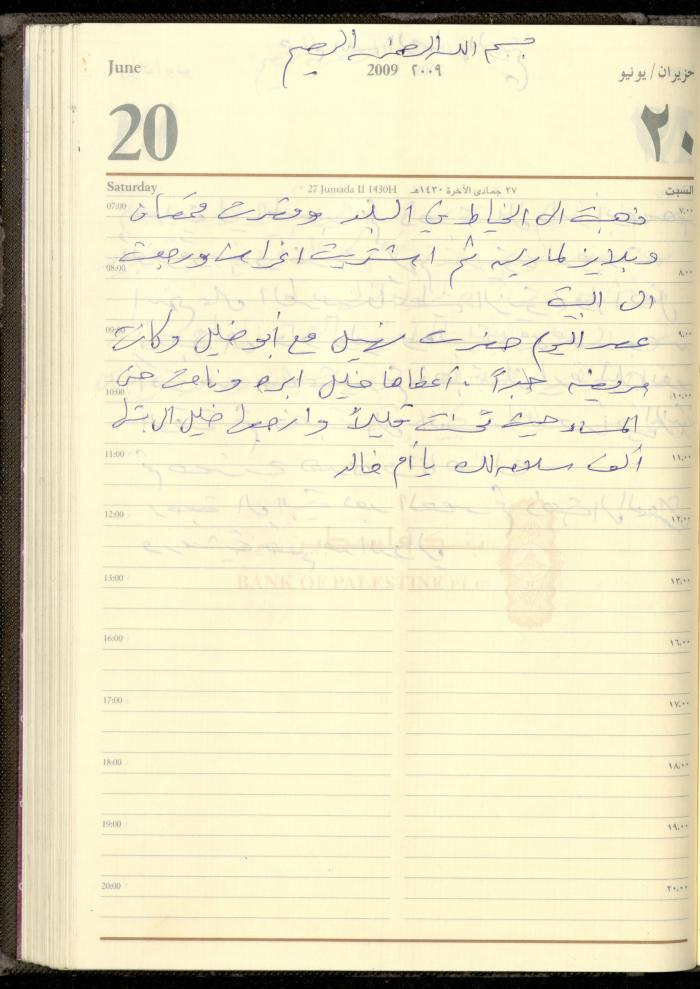 بسم الله الرحمن الرحيم
June 2009 ٢٠٠٩ حزيران / يونيو
20 ٢٠
Saturday 27 Jumada II 1430H ٢٧ جمادى الآخرة ١٤٣٠هـ السبت
07:00 ذهبت الى الخياط في البلد وقصرت قمصان ٧:٠٠
وبلايز لمارين ثم اشتريت اغراض ورجعت
08:00 ٨:٠٠
الى البيت
09:00 عصر اليوم حضرت نهيل مع أبو خليل وكانت ٩:٠٠
مريضة جداً . أعطاها خليل ابره ونامت حتى
10:00 ١٠:٠٠
المساء حيث تحسنت قليلاً وارجعها خليل الى بيتها
11:00 ألف سلامه لك يا أم خالد ١١:٠٠
12:00 ١٢:٠٠
BANK OF PALESTINE PLC
13:00 ١٣:٠٠
16:00 ١٦:٠٠
17:00 ١٧:٠٠
18:00 ١٨:٠٠
19:00 ١٩:٠٠
20:00 ٢٠:٠٠